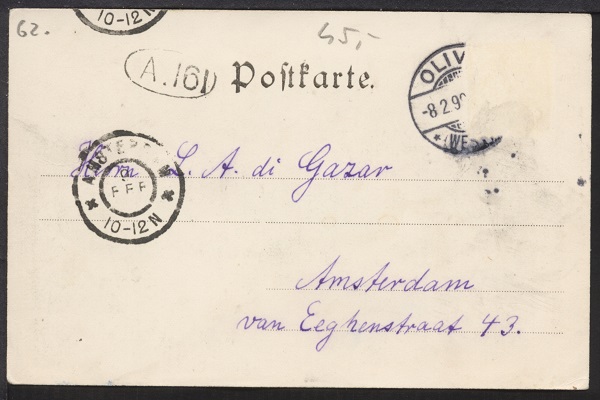 10-12N
62.
45,-
A.161
Postkarte.
OLIV
-8.2.9
(WES
AMSTERDAM
9
FEB
10-12N
Herrn L. A. di Gazar
Amsterdam
van Eeghenstraat 43.